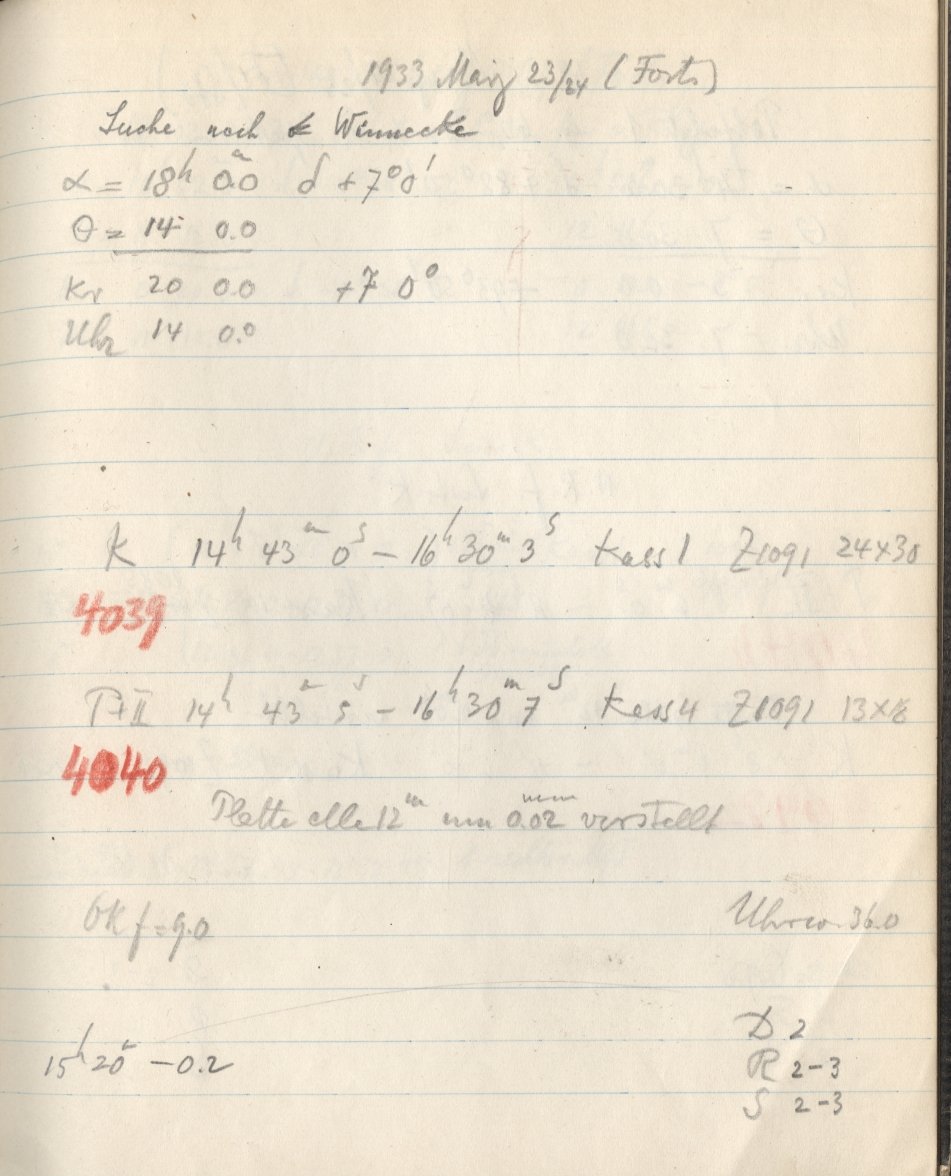 1933 März 23/24 (Forts)
Suche nach Winnecke
α = 18h 0.0m δ +7°0'
θ = 14 0.0
Kr 20 0.0 +7 0°
Uhr 14 0.0
K 14h 43m 0s – 16h 30m 3s Kass 1 Z1091 24×30
4039
P+II 14h 43m 5s – 16h 30m 7s Kass 4 Z1091 13×18
4040
Platte alle 12m um 0.02 mm verstellt
OK f = 9.0 Uhrco. 36.0
15h 20m – 0.2
D 2
R 2–3
S 2–3